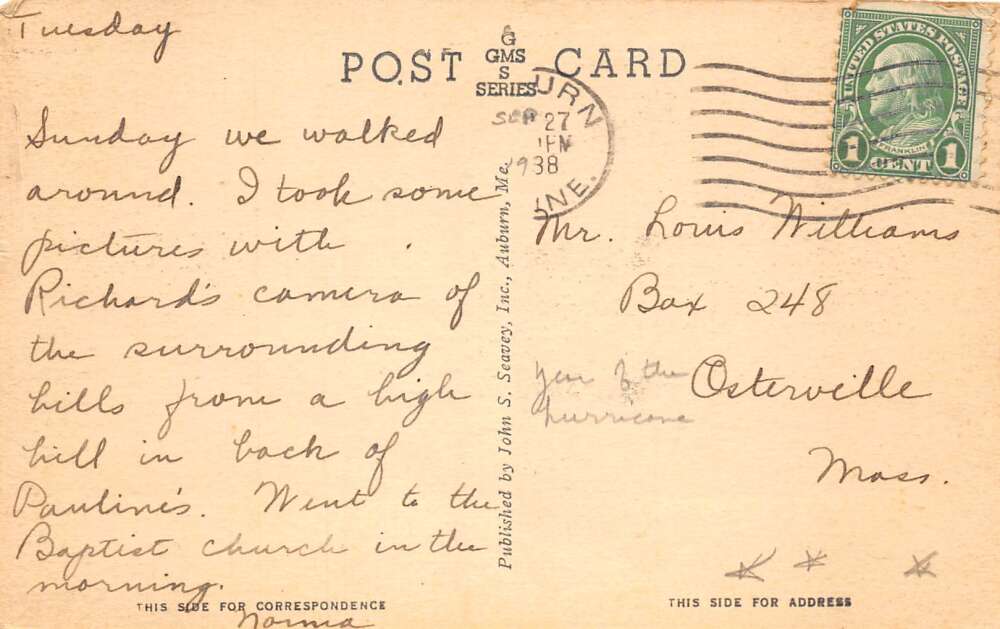 Tuesday
POST CARD
G
GMS
S
SERIES
URN
SEP 27
PM
1938
NE.
UNITED STATES POSTAGE
FRANKLIN
1 CENT 1
Sunday we walked
around. I took some
pictures with
Richard's camera of
the surrounding
hills from a high
hill in back of
Pauline's. Went to the
Baptist church in the
morning.
Norma
Published by John S. Seavey, Inc., Auburn, Me.
Mr. Louis Williams
Box 248
Osterville
Mass.
Year of the
hurricane
THIS SIDE FOR CORRESPONDENCE
THIS SIDE FOR ADDRESS